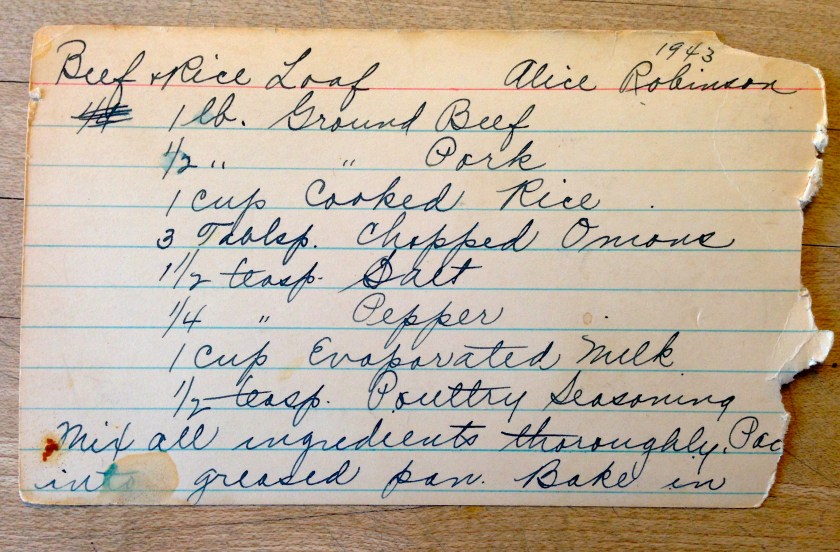 1943
Beef & Rice Loaf Alice Robinson
1 lb. Ground Beef
1/2 " " Pork
1 cup Cooked Rice
3 Tablsp. Chopped Onions
1 1/2 teasp. Salt
1/4 " Pepper
1 cup Evaporated Milk
1/2 teasp. Poultry Seasoning
Mix all ingredients thoroughly. Pac
into greased pan. Bake in